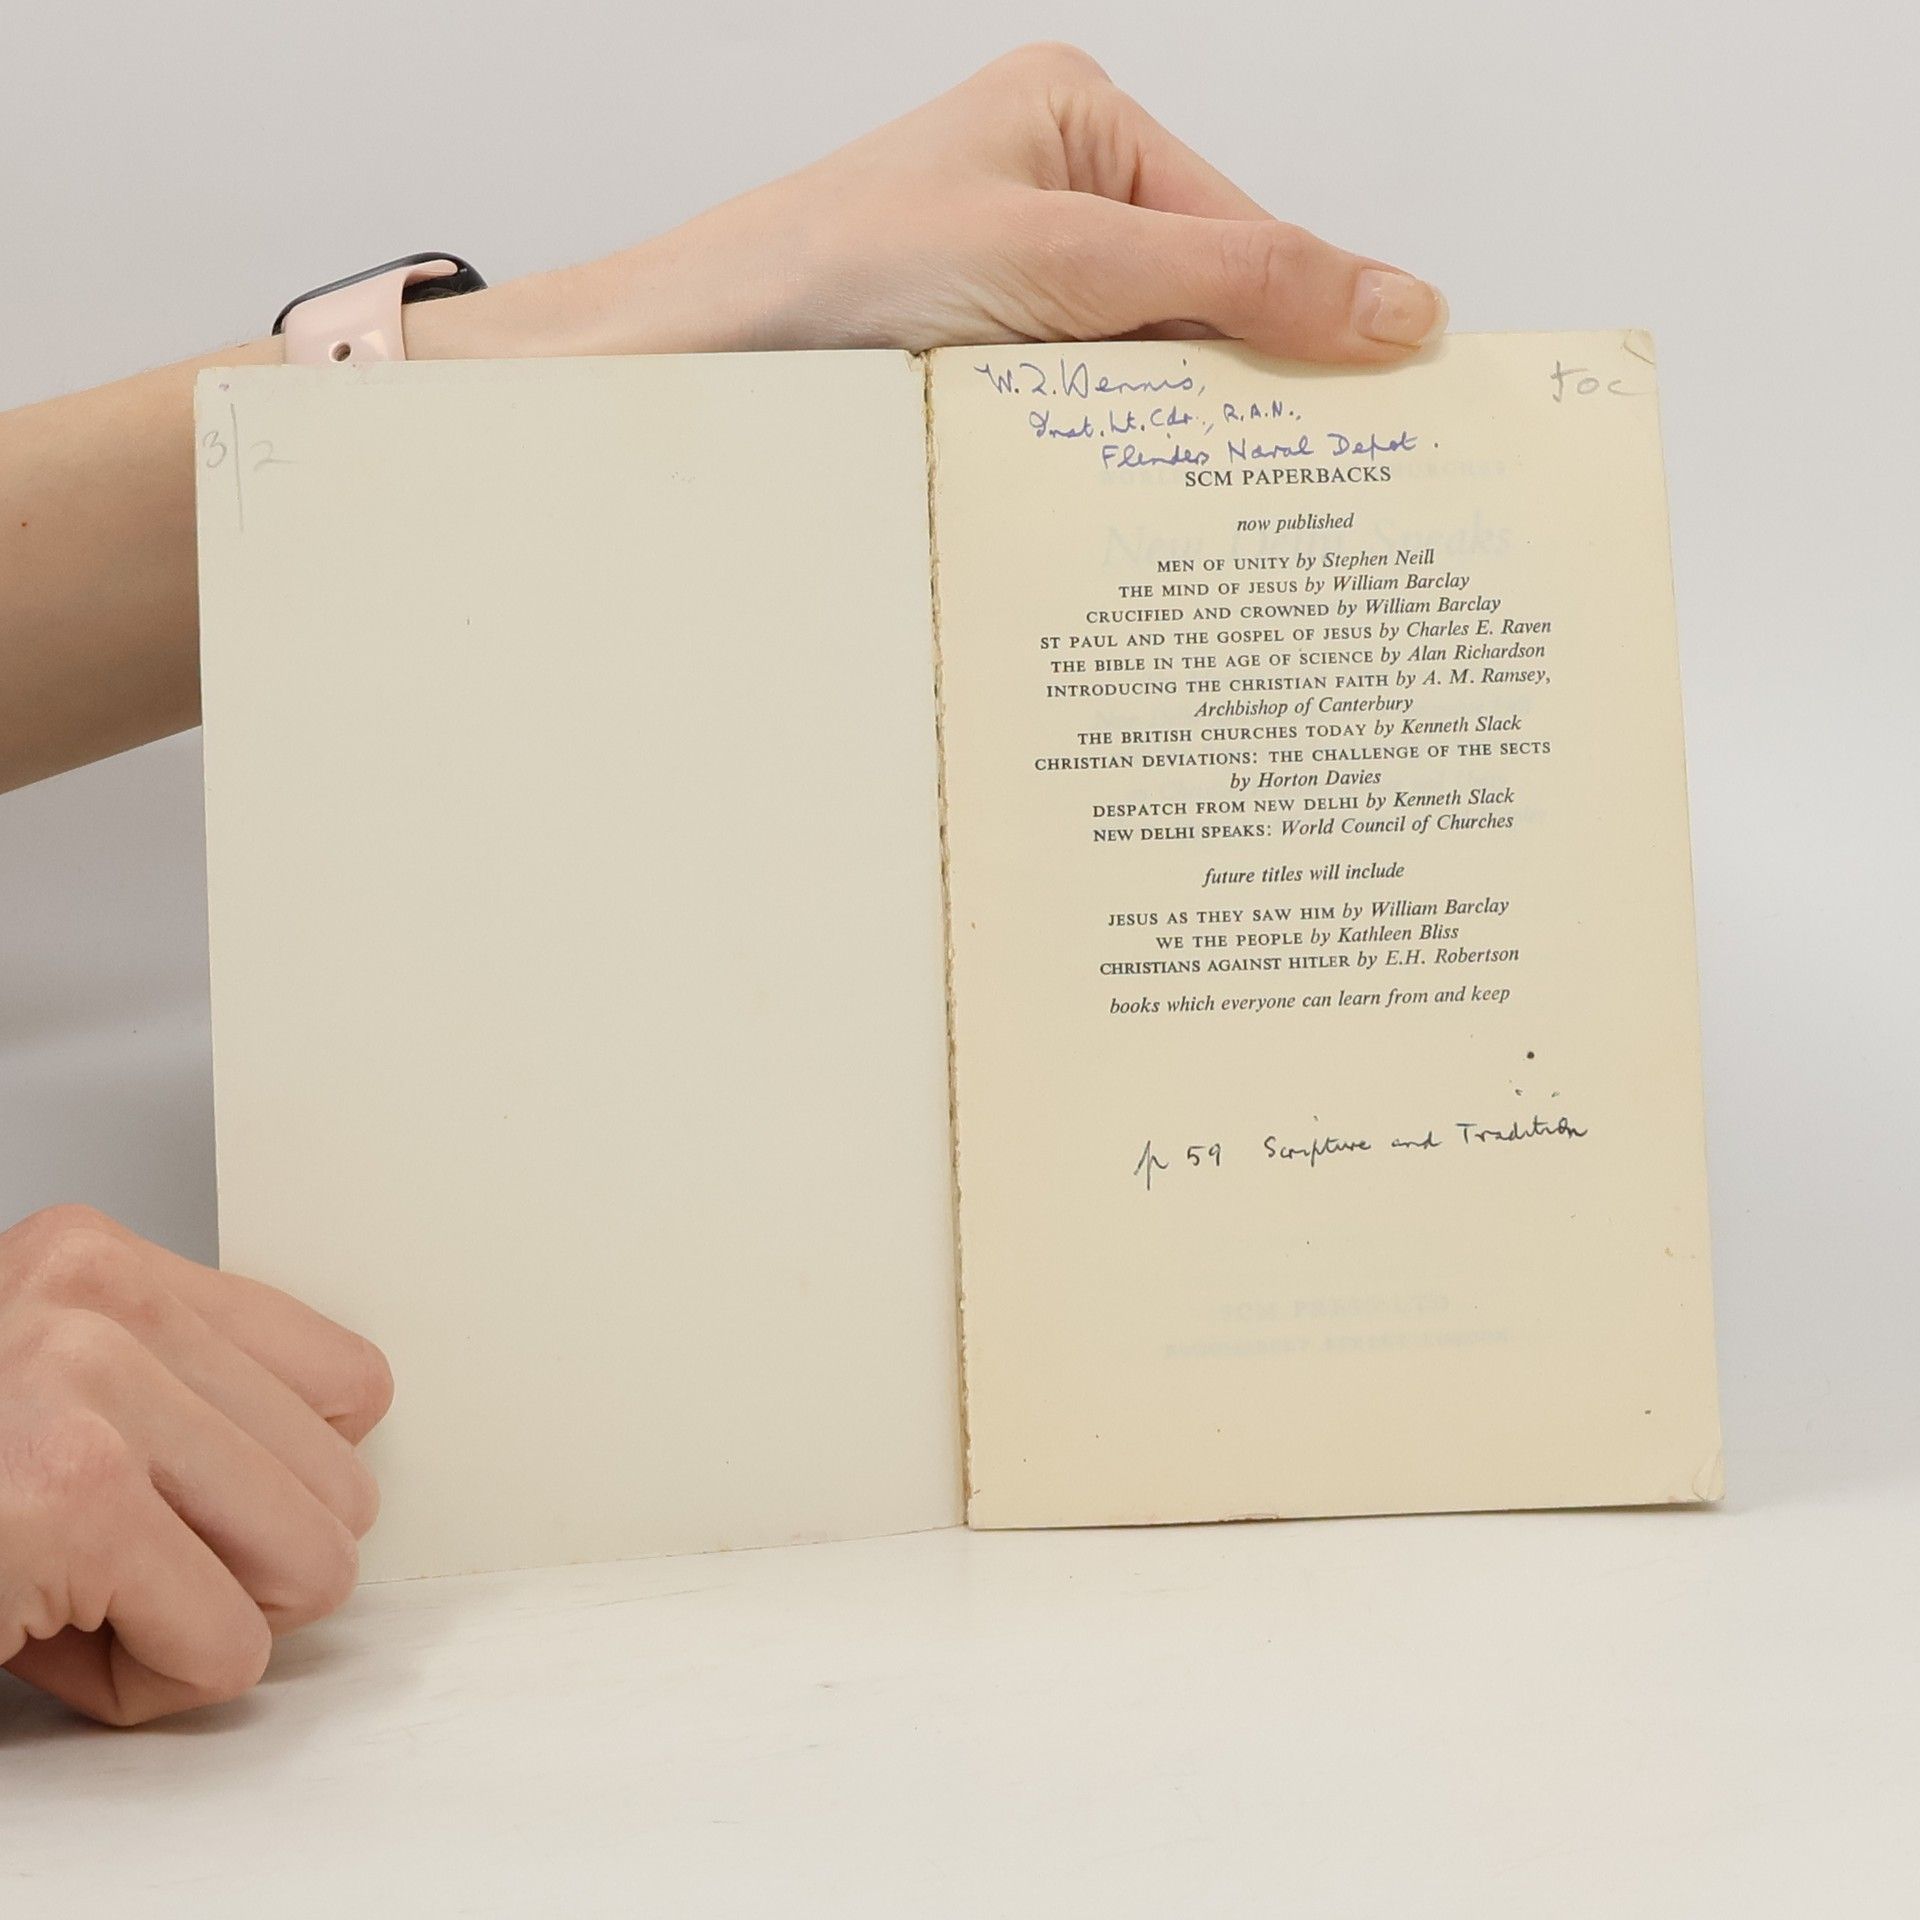 3/2
W. Z. Dennis,
Inst. Lt. Cdr., R.A.N.,
Flinders Naval Depot.
SCM PAPERBACKS
now published
MEN OF UNITY by Stephen Neill
THE MIND OF JESUS by William Barclay
CRUCIFIED AND CROWNED by William Barclay
ST PAUL AND THE GOSPEL OF JESUS by Charles E. Raven
THE BIBLE IN THE AGE OF SCIENCE by Alan Richardson
INTRODUCING THE CHRISTIAN FAITH by A. M. Ramsey,
Archbishop of Canterbury
THE BRITISH CHURCHES TODAY by Kenneth Slack
CHRISTIAN DEVIATIONS: THE CHALLENGE OF THE SECTS
by Horton Davies
DESPATCH FROM NEW DELHI by Kenneth Slack
NEW DELHI SPEAKS: World Council of Churches
future titles will include
JESUS AS THEY SAW HIM by William Barclay
WE THE PEOPLE by Kathleen Bliss
CHRISTIANS AGAINST HITLER by E.H. Robertson
books which everyone can learn from and keep
p 59 Scripture and Tradition